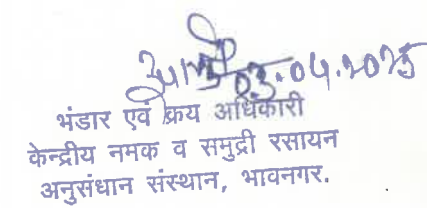 03.04.2025
भंडार एवं क्रय अधिकारी
केन्द्रीय नमक व समुद्री रसायन
अनुसंधान संस्थान, भावनगर.